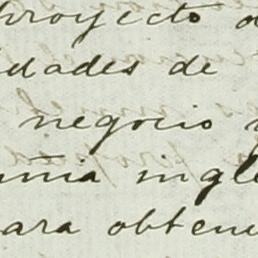 proyecto d
idades de
negocio y
uñia ingle
para obtene